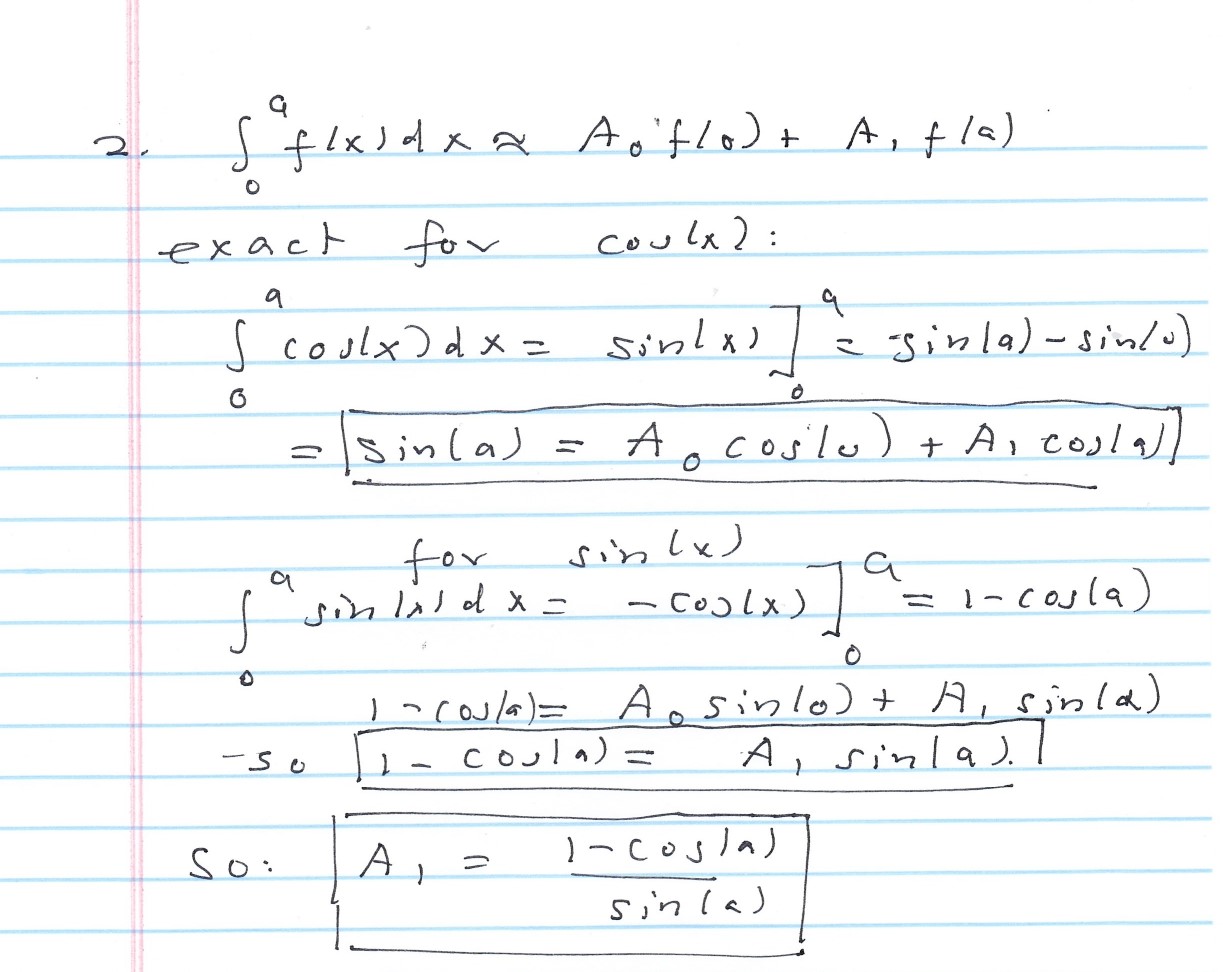 2. ∫₀ᵃ f(x)dx ≈ A₀ f(0) + A₁ f(a)
exact for cos(x):
∫₀ᵃ cos(x)dx = sin(x)]₀ᵃ = sin(a) - sin(0)
= sin(a) = A₀ cos(0) + A₁ cos(a)
for sin(x)
∫₀ᵃ sin(x)dx = -cos(x)]₀ᵃ = 1-cos(a)
1-cos(a) = A₀ sin(0) + A₁ sin(a)
-so 1-cos(a) = A₁ sin(a).
So: A₁ = (1-cos(a))/sin(a)